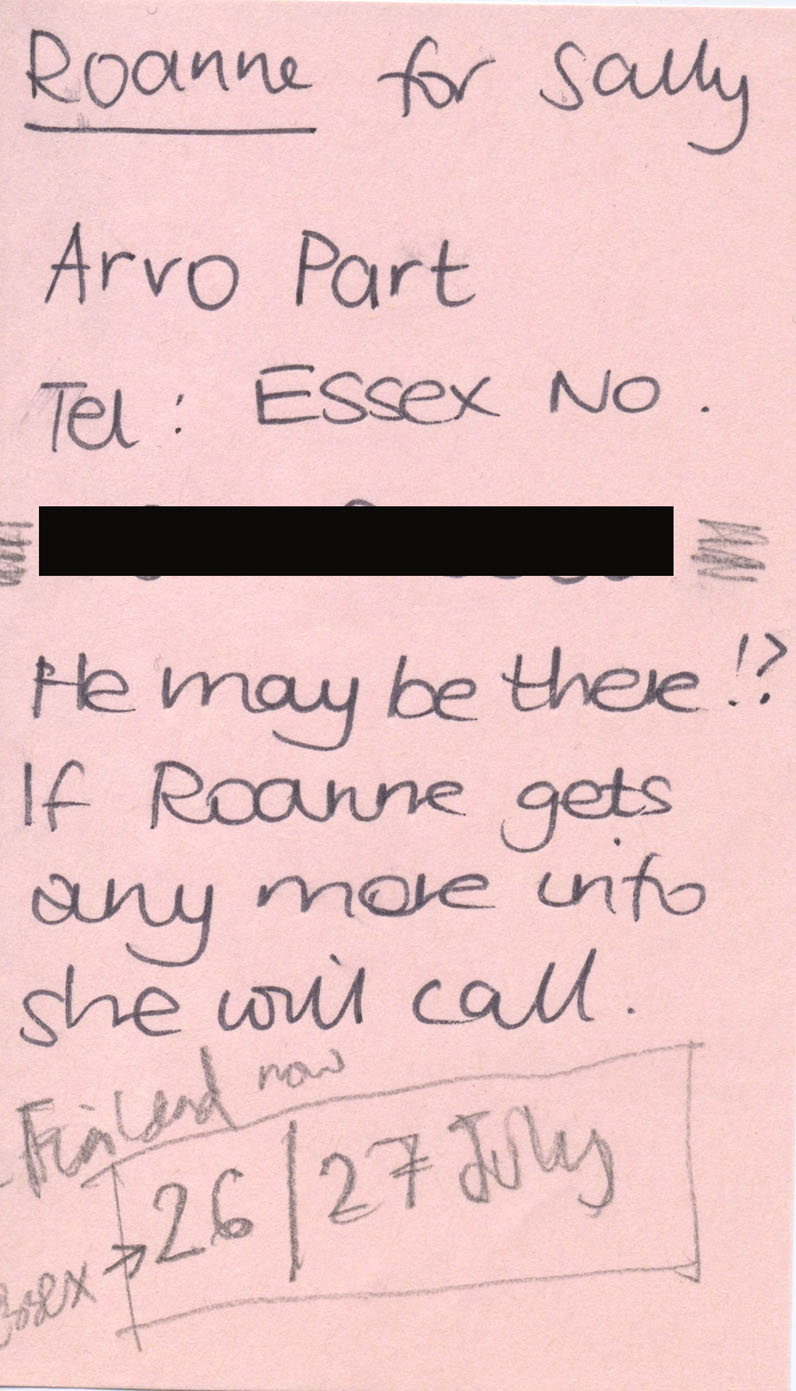 Roanne for Sally
Arvo Part
Tel: Essex No.
He may be there!?
If Roanne gets
any more info
she will call.
Finland now
26/27 July
Essex →